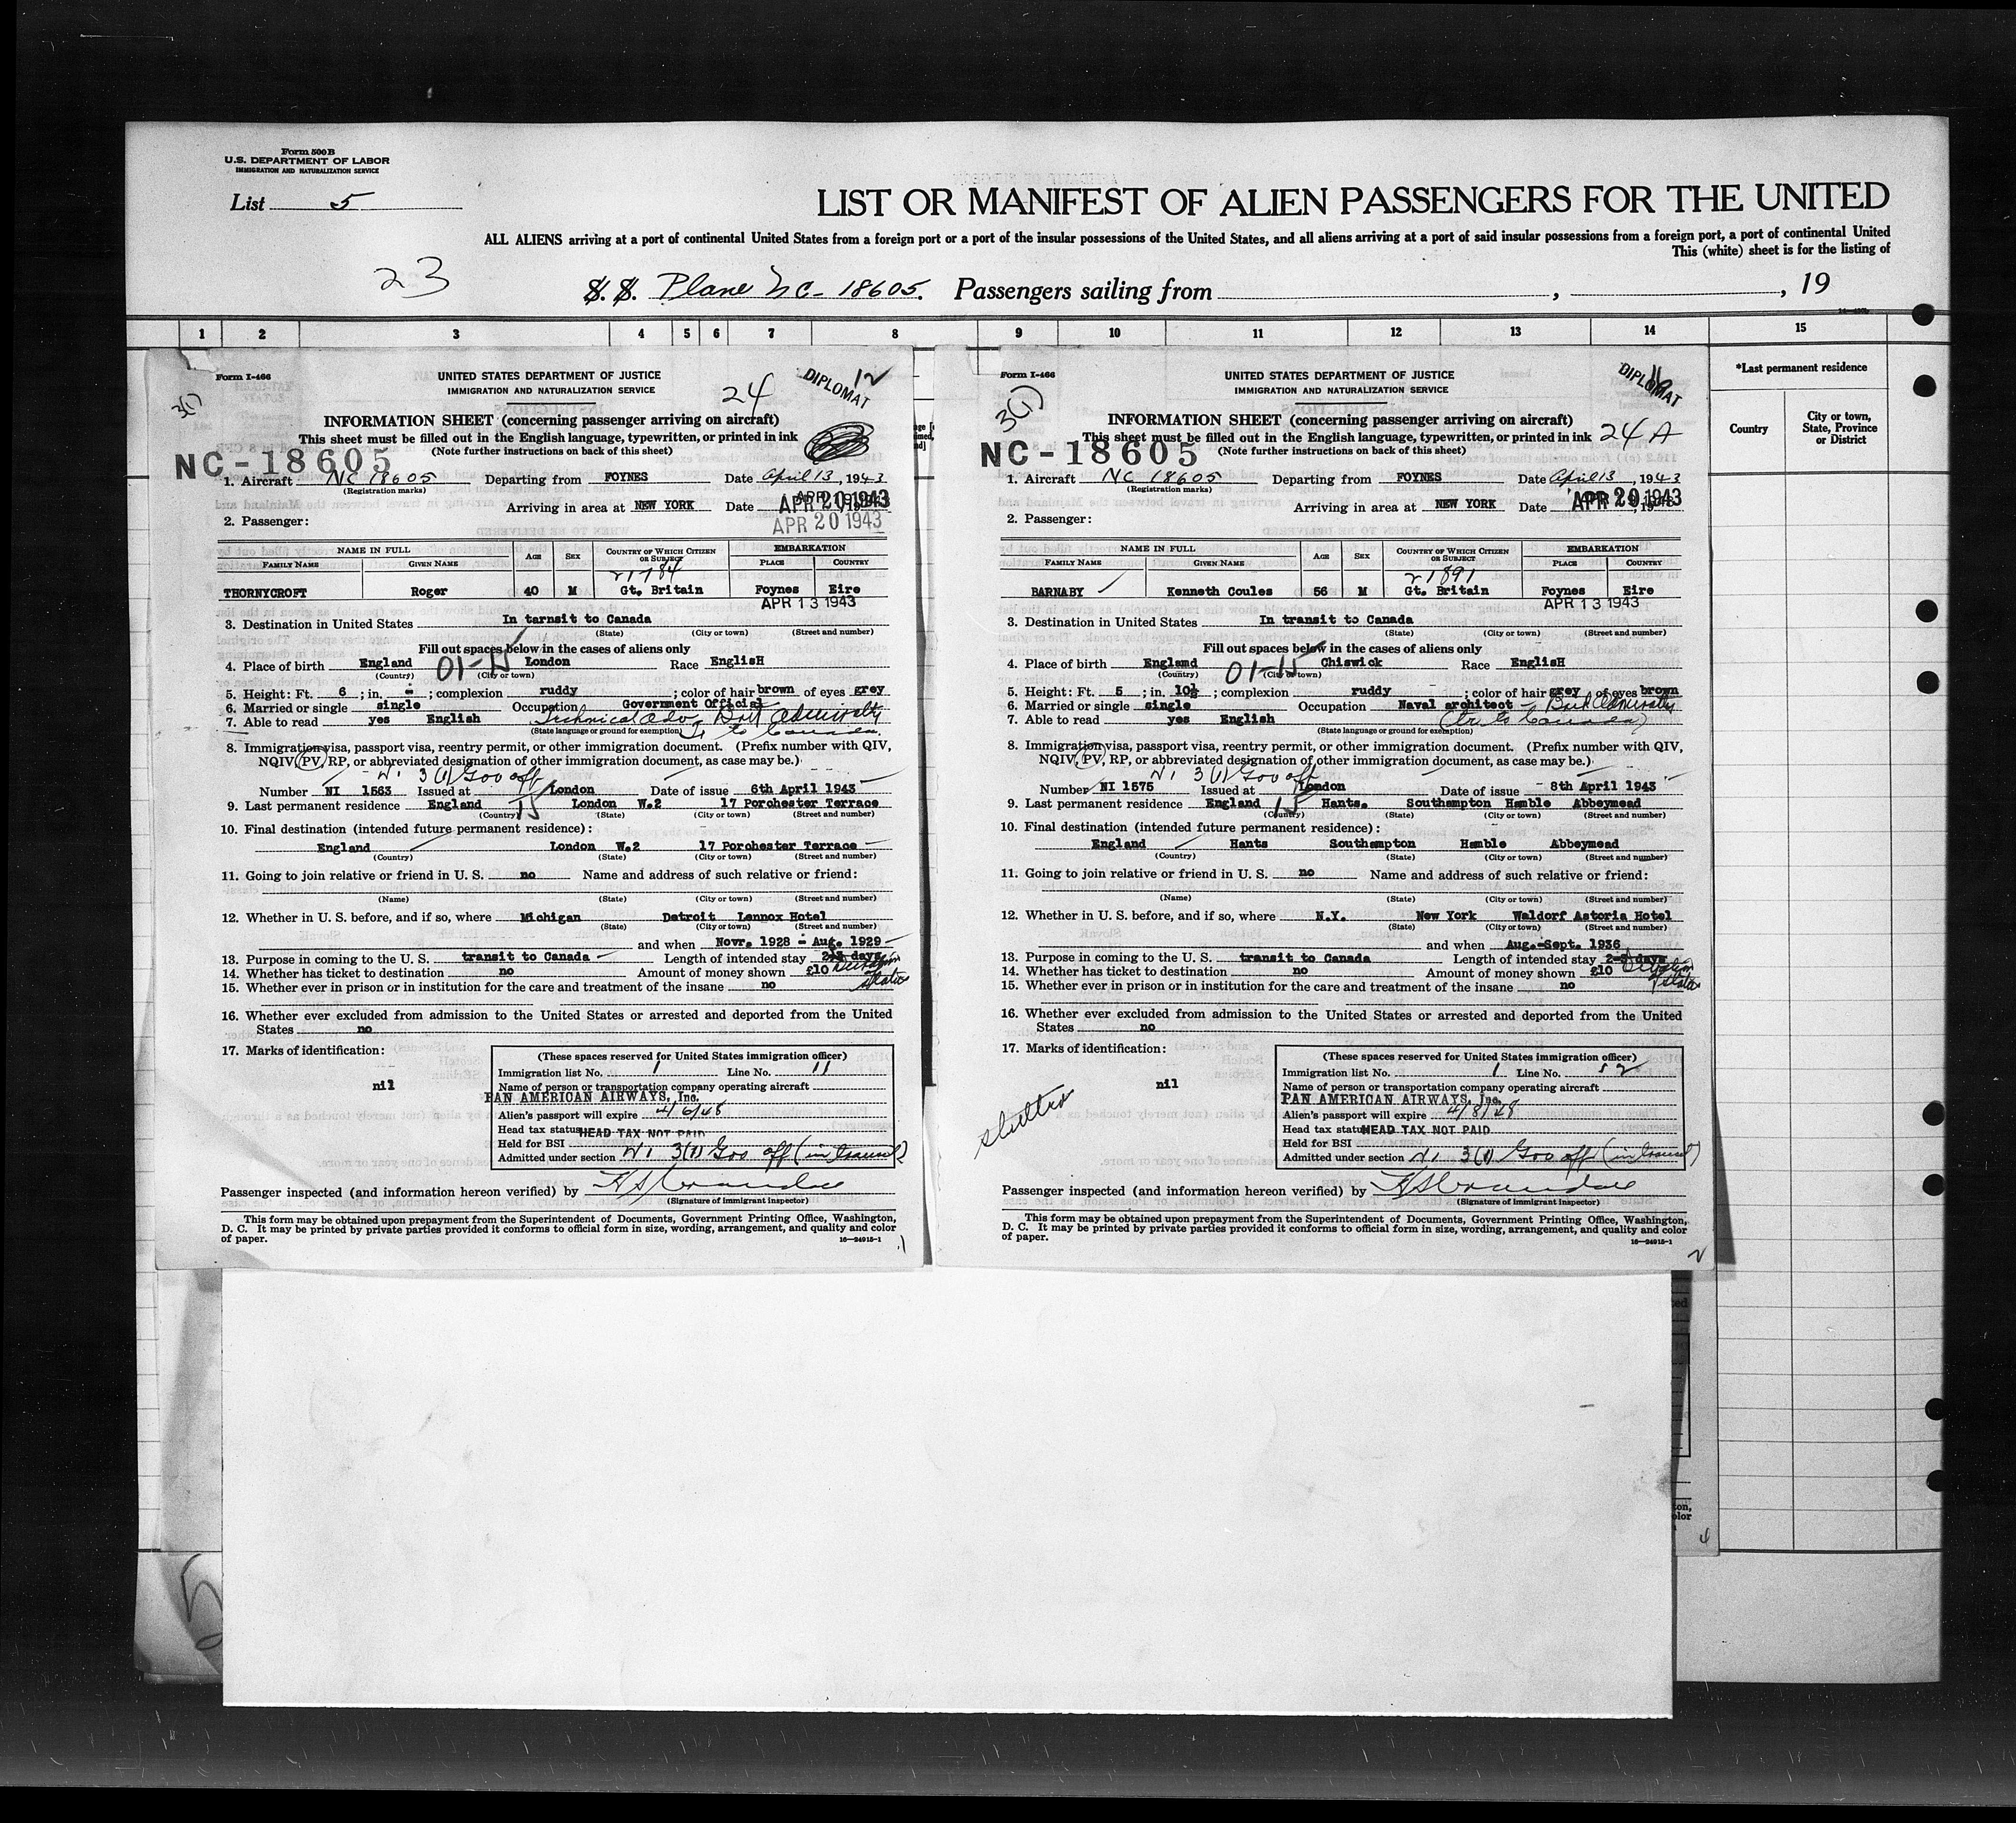 Form 500 B
U.S. DEPARTMENT OF LABOR
IMMIGRATION AND NATURALIZATION SERVICE
List 5
LIST OR MANIFEST OF ALIEN PASSENGERS FOR THE UNITED
ALL ALIENS arriving at a port of continental United States from a foreign port or a port of the insular possessions of the United States, and all aliens arriving at a port of said insular possessions from a foreign port, a port of continental United
This (white) sheet is for the listing of
23
S. S. Plane NC-18605. Passengers sailing from , , 19
1 2 3 4 5 6 7 8 9 10 11 12 13 14 15
*Last permanent residence
Country
City or town, State, Province or District
Form I-466
3(1)
UNITED STATES DEPARTMENT OF JUSTICE
IMMIGRATION AND NATURALIZATION SERVICE
24
DIPLOMAT
12
INFORMATION SHEET (concerning passenger arriving on aircraft)
This sheet must be filled out in the English language, typewritten, or printed in ink
(Note further instructions on back of this sheet)
NC-18605
1. Aircraft NC 18605 Departing from FOYNES Date April 13, 1943
(Registration marks)
Arriving in area at NEW YORK Date APR 20 1943
APR 20 1943
2. Passenger:
NAME IN FULL AGE SEX COUNTRY OF WHICH CITIZEN OR SUBJECT EMBARKATION
FAMILY NAME GIVEN NAME PLACE COUNTRY
21784
THORNYCROFT Roger 40 M Gt. Britain Foynes Eire
APR 13 1943
3. Destination in United States In tarnsit to Canada
(State) (City or town) (Street and number)
Fill out spaces below in the cases of aliens only
4. Place of birth England 01-15 London Race EnglisH
(Country) (City or town)
5. Height: Ft. 6 ; in. - ; complexion ruddy ; color of hair brown of eyes grey
6. Married or single single Occupation Government Official
7. Able to read yes English Technical Adv. Brit Admiralty
(State language or ground for exemption) Tr to Canada.
8. Immigration visa, passport visa, reentry permit, or other immigration document. (Prefix number with QIV,
NQIV, PV, RP, or abbreviated designation of other immigration document, as case may be.)
3(1) Gov off
Number NI 1563 Issued at London Date of issue 6th April 1943
9. Last permanent residence England 15 London W.2 17 Porchester Terrace
(Country) (State) (City or town) (Street and number)
10. Final destination (intended future permanent residence):
England London W.2 17 Porchester Terrace
(Country) (State) (City or town) (Street and number)
11. Going to join relative or friend in U. S. no Name and address of such relative or friend:
(Name) (State) (City or town) (Street and number)
12. Whether in U. S. before, and if so, where Michigan Detroit Lennox Hotel
(State) (City or town) (Street and number)
and when Novr. 1928 - Aug. 1929
13. Purpose in coming to the U. S. transit to Canada Length of intended stay 2-3 days
14. Whether has ticket to destination no Amount of money shown £10 Duration
15. Whether ever in prison or in institution for the care and treatment of the insane no status
16. Whether ever excluded from admission to the United States or arrested and deported from the United
States no
17. Marks of identification:
nil
(These spaces reserved for United States immigration officer)
Immigration list No. 1 Line No. 11
Name of person or transportation company operating aircraft
PAN AMERICAN AIRWAYS, Inc.
Alien's passport will expire 4/6/48
Head tax status HEAD TAX NOT PAID
Held for BSI
Admitted under section 3(1) Gov off (in transit)
Passenger inspected (and information hereon verified) by
(Signature of immigrant inspector)
This form may be obtained upon prepayment from the Superintendent of Documents, Government Printing Office, Washington,
D. C. It may be printed by private parties provided it conforms to official form in size, wording, arrangement, and quality and color
of paper. 16—24915-1
1
Form I-466
3(1)
UNITED STATES DEPARTMENT OF JUSTICE
IMMIGRATION AND NATURALIZATION SERVICE
DIPLOMAT
INFORMATION SHEET (concerning passenger arriving on aircraft)
This sheet must be filled out in the English language, typewritten, or printed in ink 24 A
(Note further instructions on back of this sheet)
NC-18605
1. Aircraft NC 18605 Departing from FOYNES Date April 13, 1943
(Registration marks)
Arriving in area at NEW YORK Date APR 20 1943
2. Passenger:
NAME IN FULL AGE SEX COUNTRY OF WHICH CITIZEN OR SUBJECT EMBARKATION
FAMILY NAME GIVEN NAME PLACE COUNTRY
21891
BARNABY Kenneth Coules 56 M Gt. Britain Foynes Eire
APR 13 1943
3. Destination in United States In transit to Canada
(State) (City or town) (Street and number)
Fill out spaces below in the cases of aliens only
4. Place of birth England 01-15 Chiswick Race EnglisH
(Country) (City or town)
5. Height: Ft. 5 ; in. 10½ ; complexion ruddy ; color of hair grey of eyes brown
6. Married or single single Occupation Naval architect - Brit Admiralty
7. Able to read yes English (tr to Canada)
(State language or ground for exemption)
8. Immigration visa, passport visa, reentry permit, or other immigration document. (Prefix number with QIV,
NQIV, PV, RP, or abbreviated designation of other immigration document, as case may be.)
3(1) Gov off
Number NI 1575 Issued at London Date of issue 8th April 1943
9. Last permanent residence England 15 Hants. Southampton Hamble Abbeymead
(Country) (State) (City or town) (Street and number)
10. Final destination (intended future permanent residence):
England Hants Southampton Hamble Abbeymead
(Country) (State) (City or town) (Street and number)
11. Going to join relative or friend in U. S. no Name and address of such relative or friend:
(Name) (State) (City or town) (Street and number)
12. Whether in U. S. before, and if so, where N.Y. New York Waldorf Astoria Hotel
(State) (City or town) (Street and number)
and when Aug.-Sept. 1936
13. Purpose in coming to the U. S. transit to Canada Length of intended stay 2-3 days
14. Whether has ticket to destination no Amount of money shown £10 Duration
15. Whether ever in prison or in institution for the care and treatment of the insane no status
16. Whether ever excluded from admission to the United States or arrested and deported from the United
States no
17. Marks of identification:
nil
(These spaces reserved for United States immigration officer)
Immigration list No. 1 Line No. 12
Name of person or transportation company operating aircraft
PAN AMERICAN AIRWAYS, Inc.
Alien's passport will expire 4/8/48
Head tax status HEAD TAX NOT PAID
Held for BSI
Admitted under section 3(1) Gov off (in transit)
Passenger inspected (and information hereon verified) by
(Signature of immigrant inspector)
This form may be obtained upon prepayment from the Superintendent of Documents, Government Printing Office, Washington,
D. C. It may be printed by private parties provided it conforms to official form in size, wording, arrangement, and quality and color
of paper. 16—24915-1
2
4
5